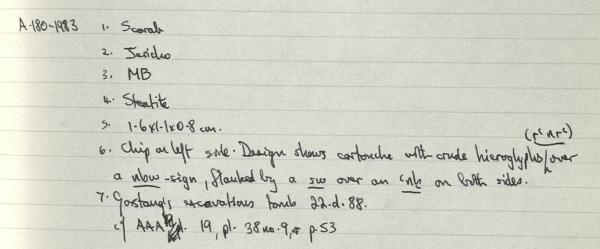 A.180-1983 1. Scarab
2. Jericho
3. MB
4. Steatite
5. 1.6x1.1x0.8 cm.
(rꜥ n rꜥ)
6. Chip on left side. Design shows cartouche with crude hieroglyphs / over
a nbw-sign, flanked by a sw over an ꜥnḫ on both sides.
7. Garstang's excavations tomb 22.d.88.
cf AAA 19, pl. 38 no. 9, & p. 53